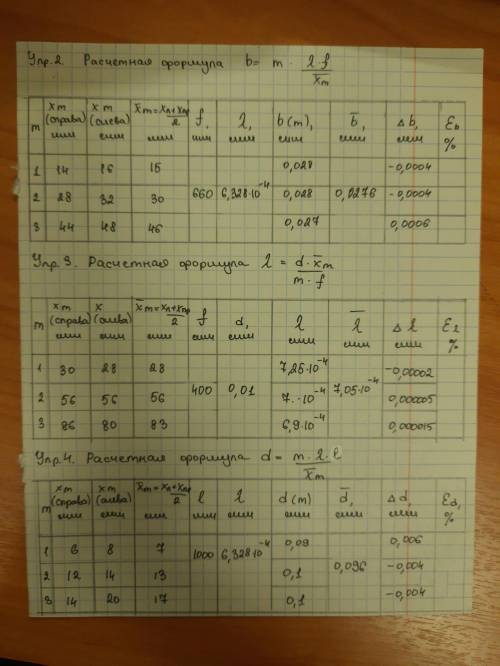 Упр.2. Расчетная формула b = m · λ·f / x̄m
m | xm (справа) мм | xm (слева) мм | x̄m = xл+xпр / 2 мм | f, мм | λ, мм | b(m), мм | b̄, мм | Δb, мм | εb %
1 | 14 | 16 | 15 | | | 0,028 | | -0,0004
2 | 28 | 32 | 30 | 660 | 6,328·10⁻⁴ | 0,028 | 0,0276 | -0,0004
3 | 44 | 48 | 46 | | | 0,027 | | 0,0006
Упр.3. Расчетная формула λ = d·x̄m / m·f
m | xm (справа) мм | x (слева) мм | x̄m = xл+xпр / 2 мм | f мм | d, мм | λ мм | λ̄ мм | Δλ мм | ελ %
1 | 30 | 28 | 28 | | | 7,25·10⁻⁴ | | -0,00002
2 | 56 | 56 | 56 | 400 | 0,01 | 7,·10⁻⁴ | 7,05·10⁻⁴ | 0,000005
3 | 86 | 80 | 83 | | | 6,9·10⁻⁴ | | 0,000015
Упр.4. Расчетная формула d = m·λ·l / x̄m
m | xm (справа) мм | xm (слева) мм | x̄m = xл+xпр / 2 мм | l мм | λ мм | d(m) мм | d̄, мм | Δd, мм | εd, %
1 | 6 | 8 | 7 | 1000 | 6,328·10⁻⁴ | 0,09 | | 0,006
2 | 12 | 14 | 13 | | | 0,1 | 0,096 | -0,004
3 | 14 | 20 | 17 | | | 0,1 | | -0,004